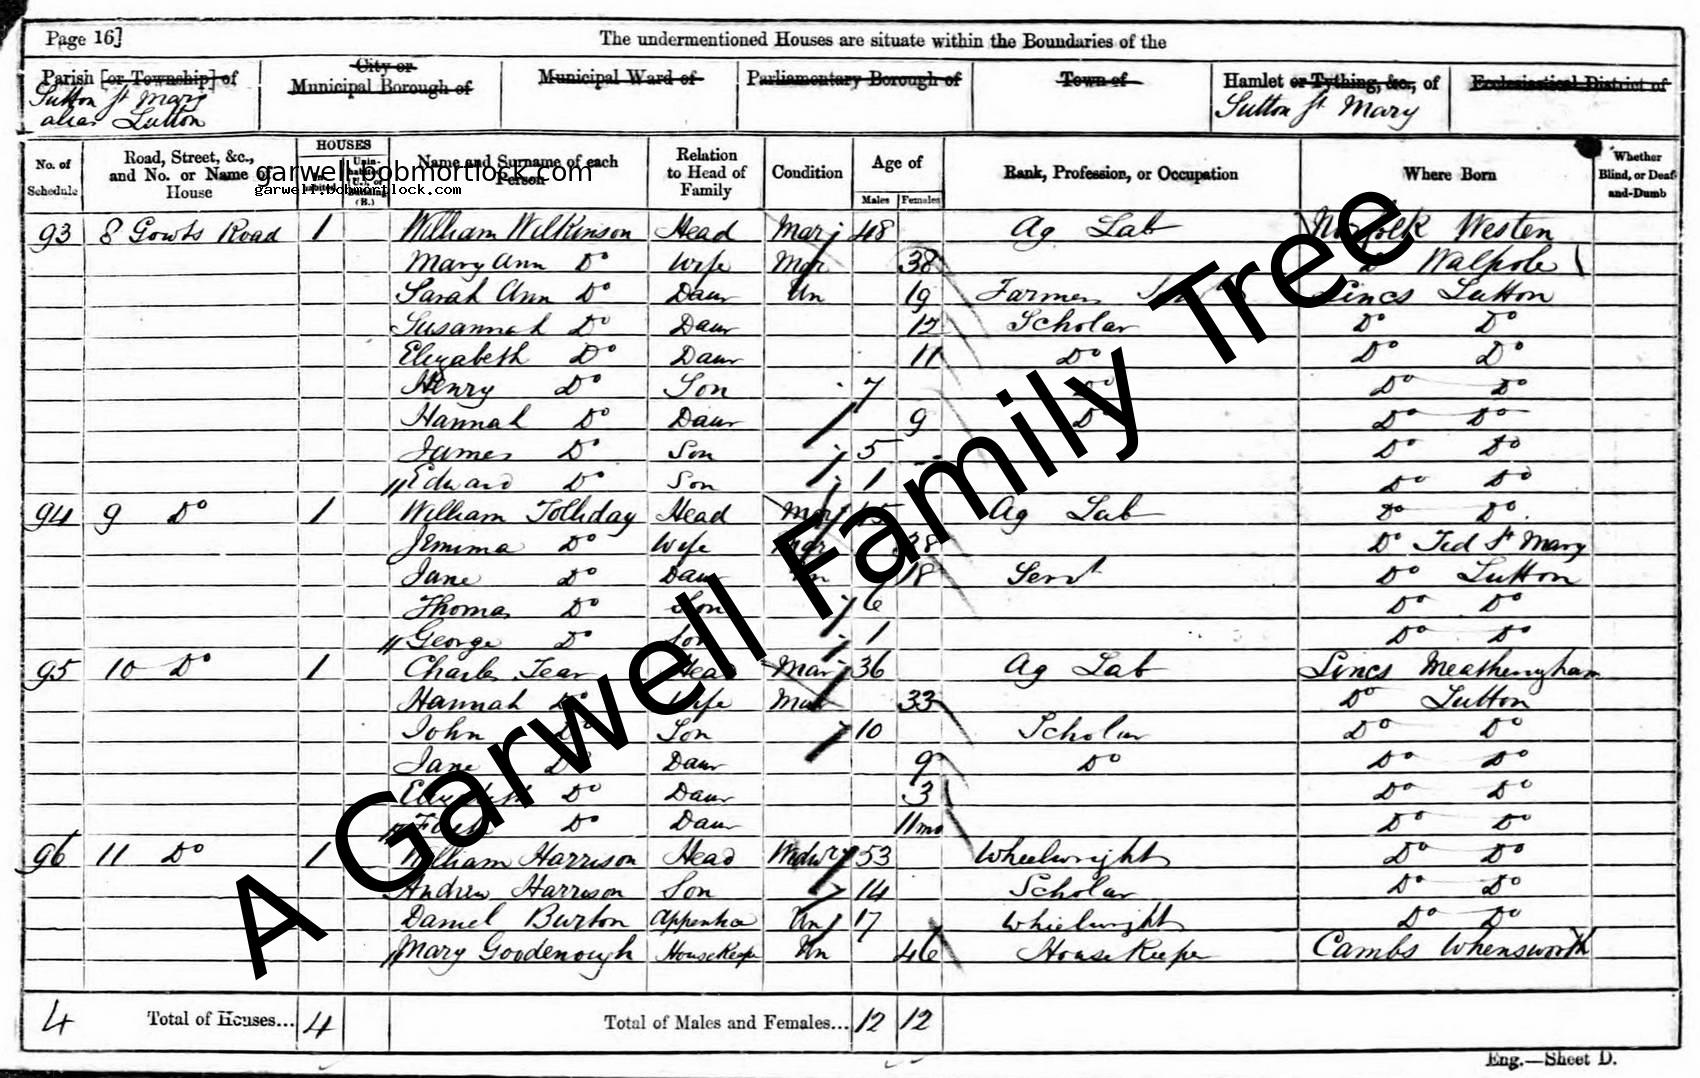 Page 16]
The undermentioned Houses are situate within the Boundaries of the
Parish [or Township] of
Sutton St Mary
alias Lutton
City or
Municipal Borough of
Municipal Ward of
Parliamentary Borough of
Town of
Hamlet or Tything, &c., of
Sutton St Mary
Ecclesiastical District of
No. of Schedule
Road, Street, &c., and No. or Name of House
HOUSES
Name and Surname of each Person
Relation to Head of Family
Condition
Age of
Males Females
Rank, Profession, or Occupation
Where Born
Whether Blind, or Deaf-and-Dumb
garwell.bobmortlock.com
garwell.bobmortlock.com
93 8 Gowts Road 1 William Wilkinson Head Mar 48 Ag Lab Norfolk Westen
Mary Ann Do Wife Mar 38 Do Walpole
Sarah Ann Do Daur Un 19 Farmer Lincs Lutton
Susannah Do Daur 12 Scholar Do Do
Elizabeth Do Daur 11 Do Do Do
Henry Do Son 7 Do Do Do
Hannah Do Daur 9 Do Do Do
James Do Son 5 Do Do
Edward Do Son 1 Do Do
94 9 Do 1 William Tolliday Head Mar 45 Ag Lab Do Do
Jemima Do Wife Mar 38 Do Tid St Mary
Jane Do Daur Un 18 Servt Do Lutton
Thomas Do Son 6 Do Do
George Do Son 1 Do Do
95 10 Do 1 Charles Tear Head Mar 36 Ag Lab Lincs Meatheringham
Hannah Do Wife Mar 33 Do Lutton
John Do Son 10 Scholar Do Do
Jane Do Daur 9 Do Do Do
Elizabeth Do Daur 3 Do Do
Do Daur 11mo Do Do
96 11 Do 1 William Harrison Head Widwr 53 Wheelwright Do Do
Andrew Harrison Son 14 Scholar Do Do
Daniel Burton Apprentice Un 17 Whielwright Do Do
Mary Goodenough HouseKeeper Un 46 House Keeper Cambs Whensworth
4 Total of Houses... 4 Total of Males and Females... 12 12
Eng.—Sheet D.
A Garwell Family Tree